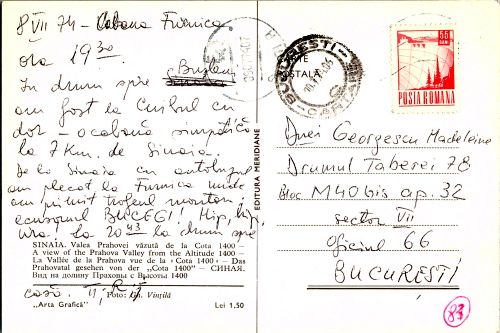 8 VII 74 - Cabana Furnica
ora 19³⁰
Bușteni
In drum spre
am fost la Cerbul cu
dor - o cabană simpatică
la 7 Km. de Sinaia.
De la Sinaia cu autobuzul
am plecat la Furnica unde
am primit trofeul montan:
ecusonul BUCEGI! Hip, hip,
ura! la 20⁴³ la drum spre
SINAIA. Valea Prahovei văzută de la Cota 1400 -
A view of the Prahova Valley from the Altitude 1400 -
La Vallée de la Prahova vue de la « Cota 1400 » - Das
Prahovatal gesehen von der „Cota 1400" - СИНАЯ.
Вид на долину Праховы с Высоты 1400
casă.
Foto: Gh. Vințilă
"Arta Grafică"
Lei 1,50
EDITURA MERIDIANE
CARTE
POSTALĂ
BUCUREȘTI
55
BANI
POSTA ROMANA
Dnei Georgescu Madeleine
Drumul Taberei 78
Bloc M40 bis ap. 32
sector VII
Oficiul 66
BUCUREȘTI
83